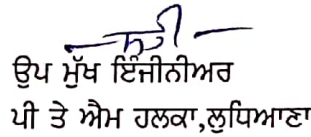 ਸਹੀ
ਉਪ ਮੁੱਖ ਇੰਜੀਨੀਅਰ
ਪੀ ਤੇ ਐਮ ਹਲਕਾ,ਲੁਧਿਆਣਾ